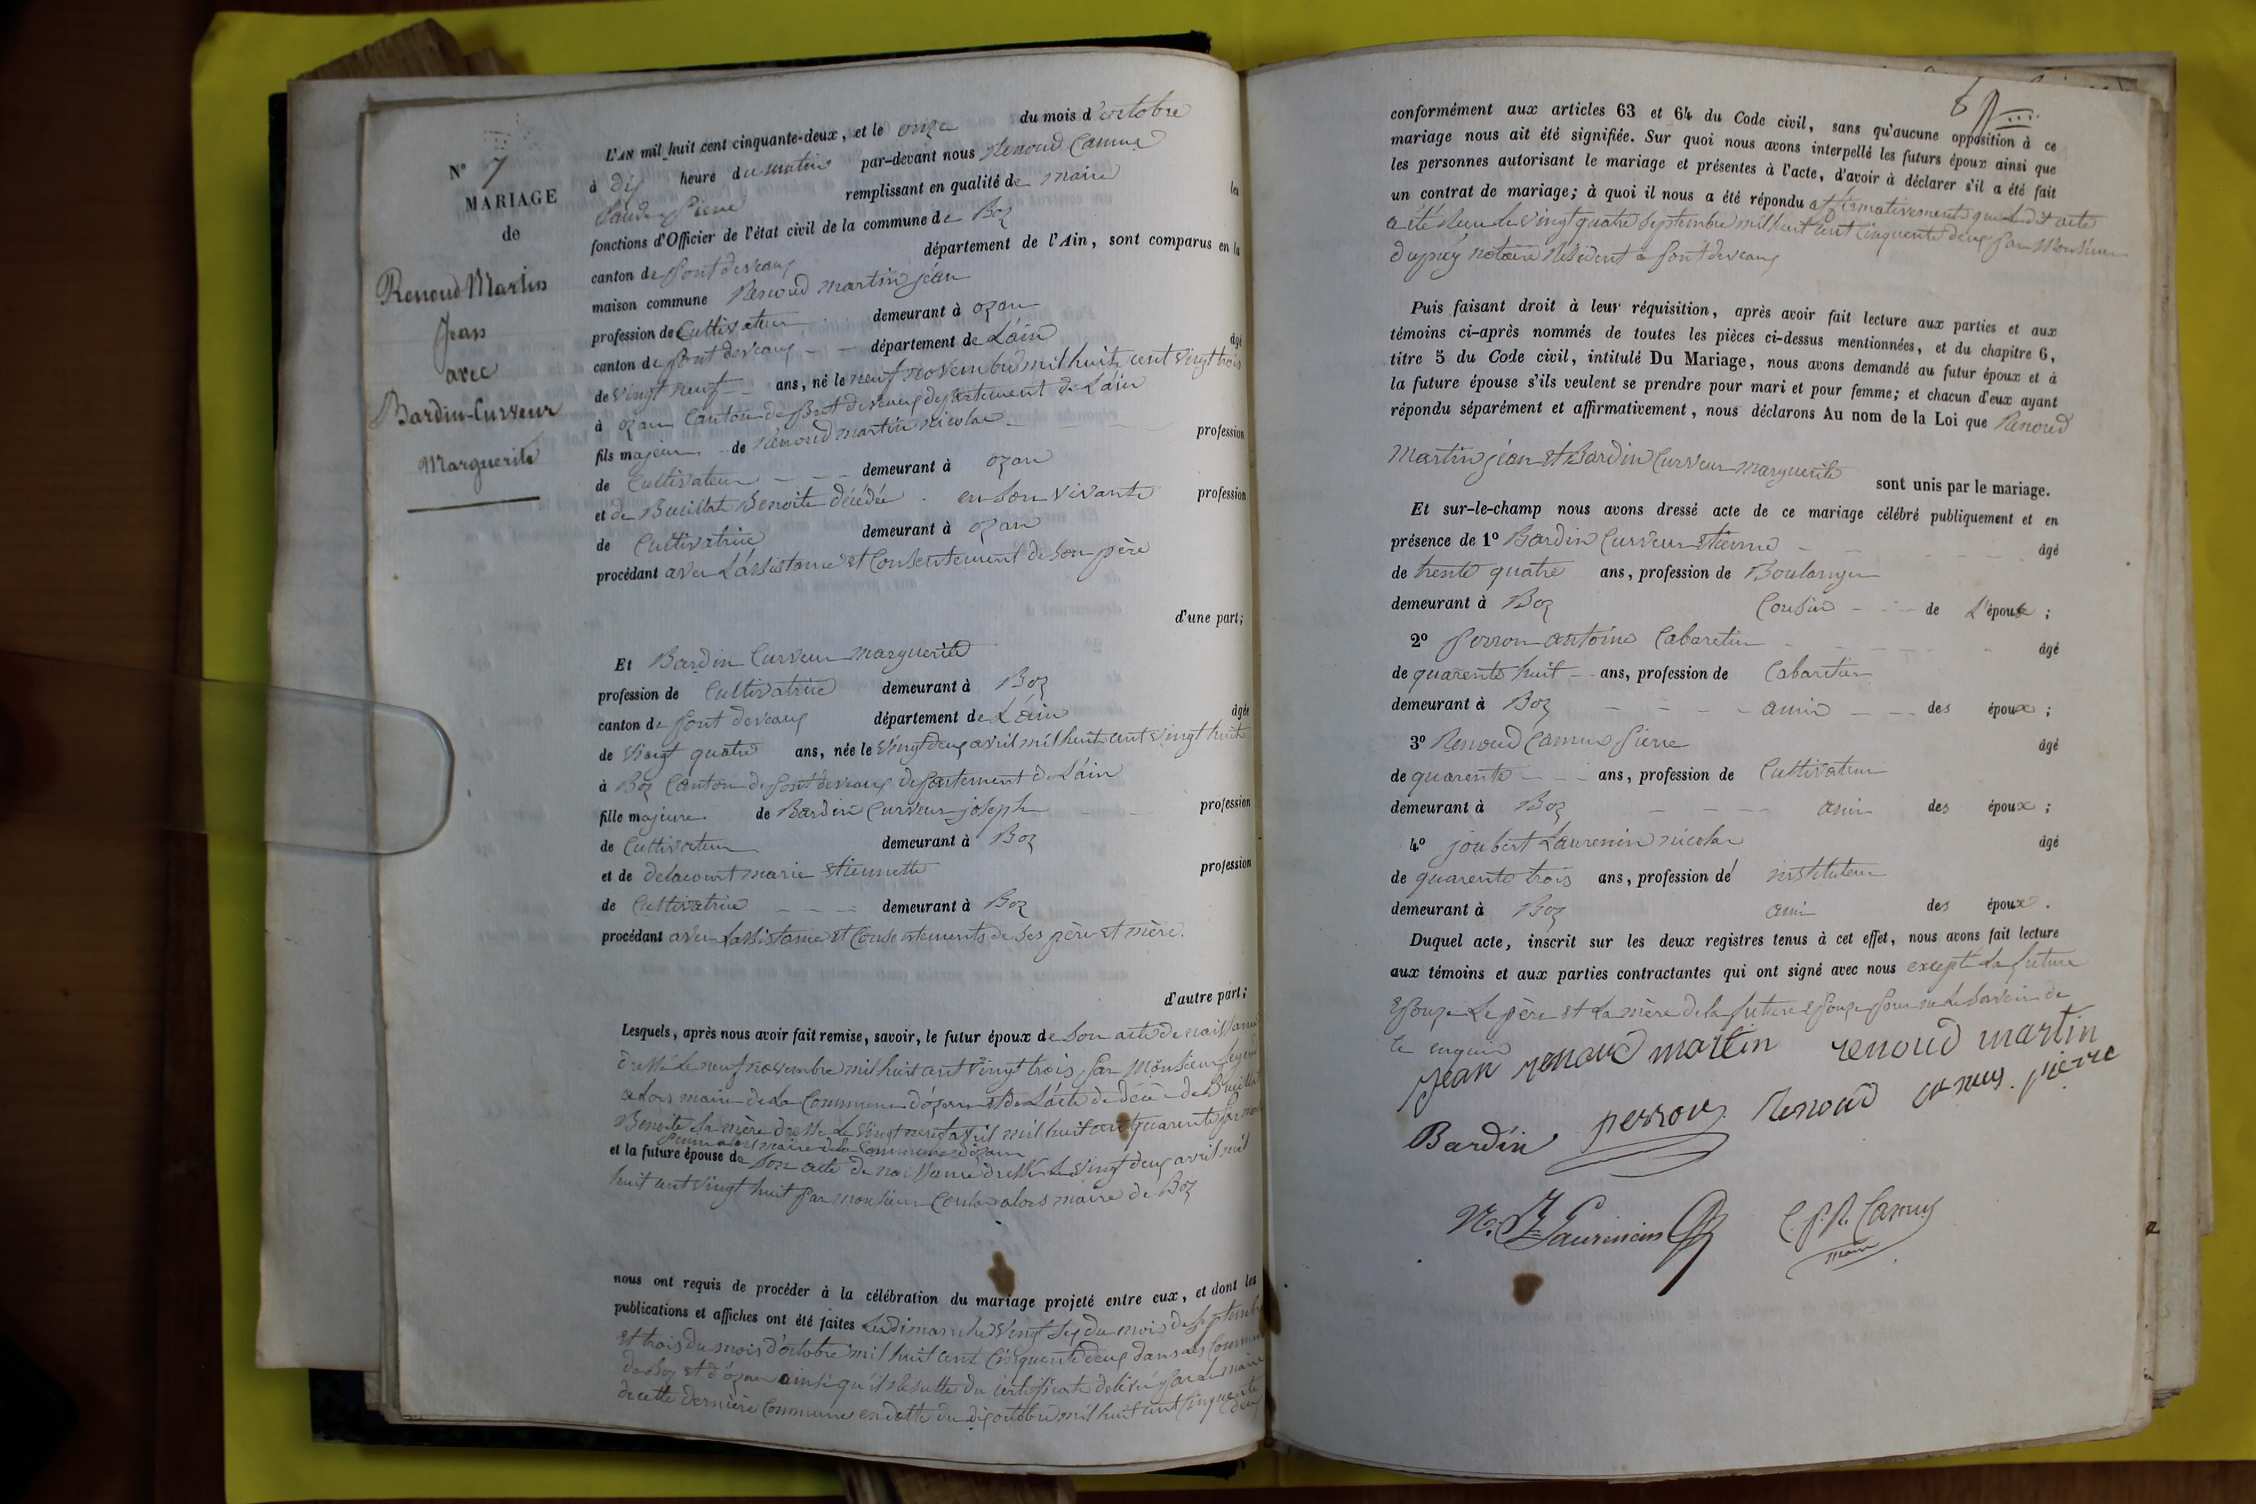 N° 7
MARIAGE
de
Renoud Martin
Jean
avec
Bardin-Curveur
Marguerite
L'AN mil huit cent cinquante-deux, et le onze du mois d'octobre
à dix heure du matin par-devant nous Renoud Camus
Pierre remplissant en qualité de maire les
fonctions d'Officier de l'état civil de la commune de Boz
canton de pont devaux département de l'Ain, sont comparus en la
maison commune Renoud martin jéan
profession de Cultivateur demeurant à ozan
canton de pont devaux département de L'ain âgé
de vingt neuf ans, né le neuf novembre mil huit cent vingt trois
à ozan Canton de pont devaux département de L'ain
fils majeur de Renoud martin nicolas profession
de Cultivateur demeurant à ozan
et de Buillat Benoite décédée en son vivante profession
de Cultivatrice demeurant à ozan
procédant avec L'assistance et Consentement de son père
d'une part;
Et Bardin Curveur marguerite
profession de Cultivatrice demeurant à Boz
canton de pont devaux département de L'ain âgée
de vingt quatre ans, née le vingt deux avril mil huit cent vingt huit
à Boz Canton de pont devaux département de L'ain
fille majeure de Bardin Curveur joseph profession
de Cultivateur demeurant à Boz
et de delacourt marie etiennette profession
de Cultivatrice demeurant à Boz
procédant avec L'assistance et Consentements de ses père et mère.
d'autre part;
Lesquels, après nous avoir fait remise, savoir, le futur époux de son acte de naissance
dressé le neuf novembre mil huit cent vingt trois par Monsieur
alors maire de La Commune d'ozan et de L'acte de décè de Buillat
Benoite sa mère dressé le vingt neuf avril mil huit cent quarente
alors maire de la Commune d'ozan
et la future épouse de son acte de naissance dressé le vingt deux avril mil
huit cent vingt huit par monsieur alors maire de Boz
nous ont requis de procéder à la célébration du mariage projeté entre eux, et dont les
publications et affiches ont été faites les dimanches vingt six du mois de septembre
et trois du mois d'octobre mil huit cent cinquente deux dans les Communes
de Boz et d'ozan ainsi qu'il résulte du certificat délivré par le maire
de cette dernière Commune en datte du dix octobre mil huit cent cinquente
deux
conformément aux articles 63 et 64 du Code civil, sans qu'aucune opposition à ce
mariage nous ait été signifiée. Sur quoi nous avons interpellé les futurs époux ainsi que
les personnes autorisant le mariage et présentes à l'acte, d'avoir à déclarer s'il a été fait
un contrat de mariage; à quoi il nous a été répondu affirmativement que ledit acte
a été reçu le vingt quatre septembre mil huit cent cinquente deux par Monsieur
Dupuy notaire Résident à pont devaux
Puis faisant droit à leur réquisition, après avoir fait lecture aux parties et aux
témoins ci-après nommés de toutes les pièces ci-dessus mentionnées, et du chapitre 6,
titre 5 du Code civil, intitulé Du Mariage, nous avons demandé au futur époux et à
la future épouse s'ils veulent se prendre pour mari et pour femme; et chacun d'eux ayant
répondu séparément et affirmativement, nous déclarons Au nom de la Loi que Renoud
Martin jéan et Bardin Curveur marguerite
sont unis par le mariage.
Et sur-le-champ nous avons dressé acte de ce mariage célébré publiquement et en
présence de 1° Bardin Curveur etienne âgé
de trente quatre ans, profession de Boulanger
demeurant à Boz Cousin de L'épouse;
2° perron antoine Cabaretier âgé
de quarente huit ans, profession de Cabaretier
demeurant à Boz amis des époux;
3° Renoud Camus pierre âgé
de quarente ans, profession de Cultivateur
demeurant à Boz amis des époux;
4° joubert Laurencin nicolas âgé
de quarente trois ans, profession de instituteur
demeurant à Boz ami des époux.
Duquel acte, inscrit sur les deux registres tenus à cet effet, nous avons fait lecture
aux témoins et aux parties contractantes qui ont signé avec nous excepté La future
Epouze Le père et La mère de la future Epouze pour ne le savoir de
ce enquis
jean renoud martin renoud martin
Bardin perron Renoud camus pierre
N. Laurencin C. P. R. Camus
maire